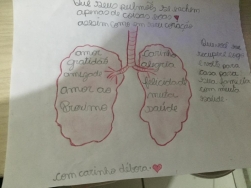 Que seus pulmões se enchem
apenas de coisas boas ♥
assim como em seu coração
amor
gratidão
amizade
amor ao
Próximo
Carinho
alegria
felicidade
muita
saúde
Que você se
recupere logo
e volte para
casa para
sua família
com muita
saúde
com carinho débora ♥